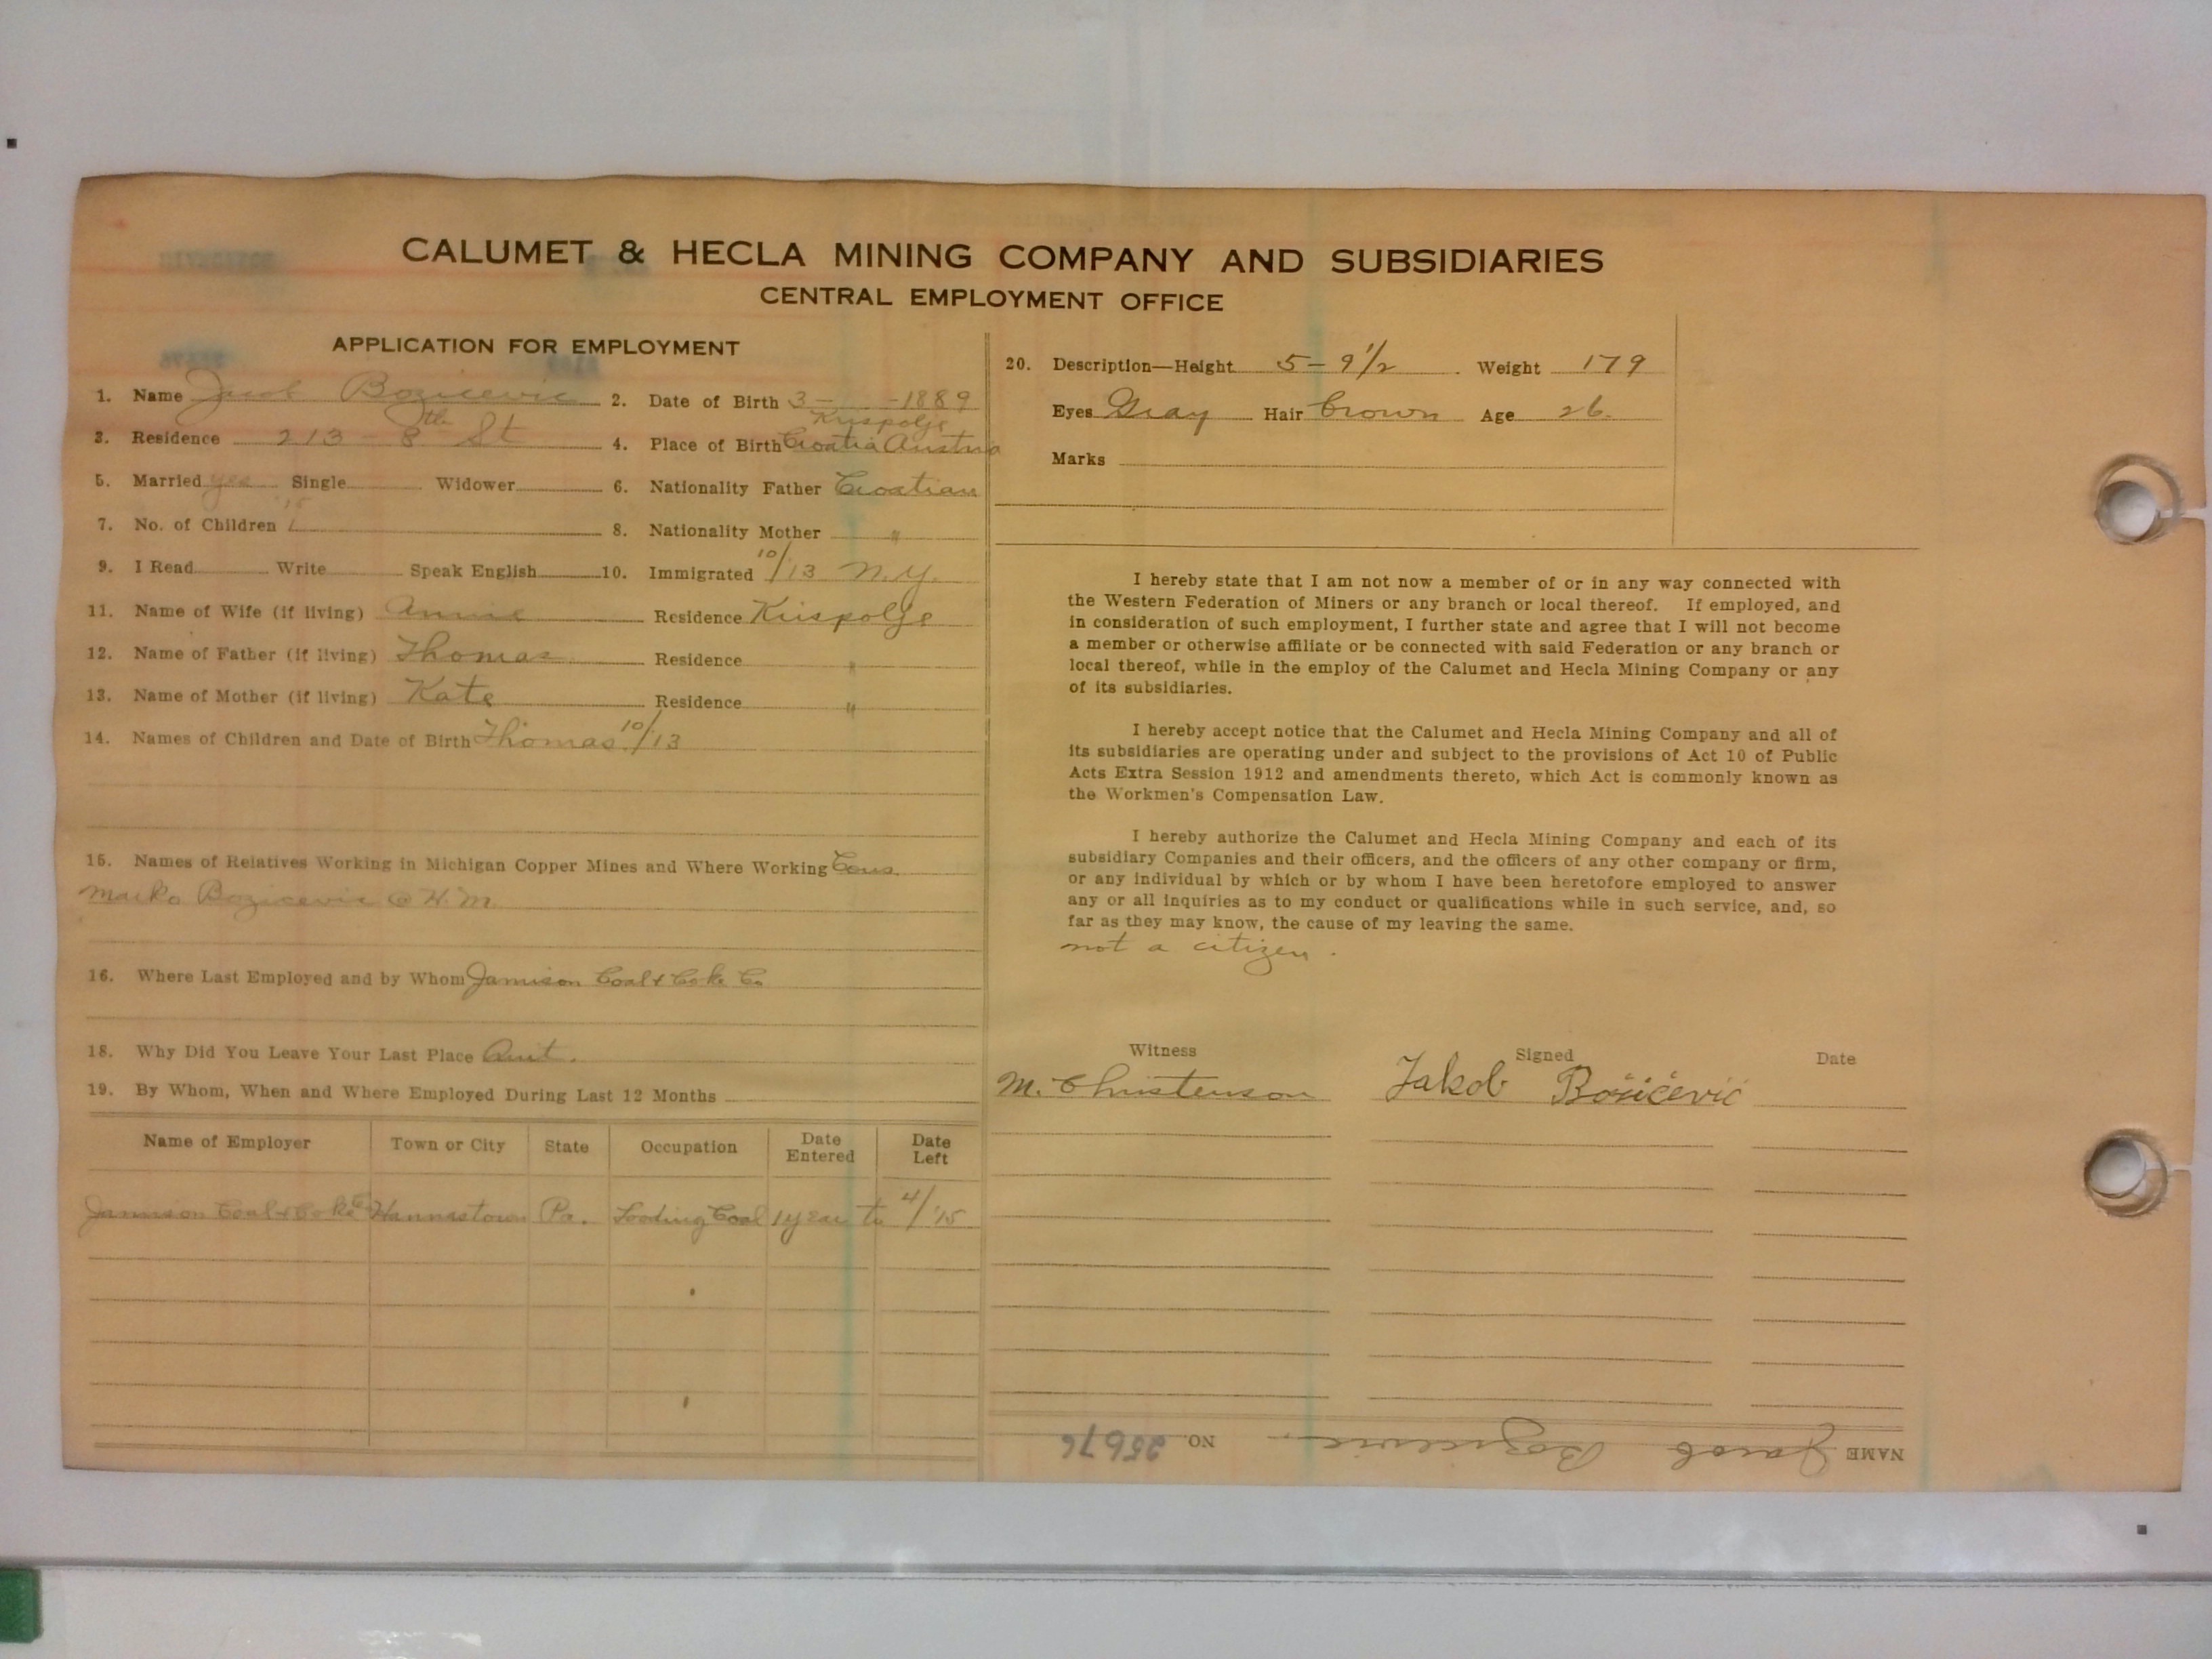 CALUMET & HECLA MINING COMPANY AND SUBSIDIARIES
CENTRAL EMPLOYMENT OFFICE
APPLICATION FOR EMPLOYMENT
1. Name Jacob Bozicevic 2. Date of Birth 3- -1889
3. Residence 213 - 8th St 4. Place of Birth Krispolje Croatia Austria
5. Married yes Single Widower 6. Nationality Father Croatian
7. No. of Children 1 8. Nationality Mother "
9. I Read Write Speak English 10. Immigrated 10/13 N.Y.
11. Name of Wife (if living) Annie Residence Krispolje
12. Name of Father (if living) Thomas Residence "
13. Name of Mother (if living) Kate Residence "
14. Names of Children and Date of Birth Thomas 10/13
15. Names of Relatives Working in Michigan Copper Mines and Where Working Cous
Marko Bozicevic @ H.M.
16. Where Last Employed and by Whom Jamison Coal & Coke Co
18. Why Did You Leave Your Last Place Quit.
19. By Whom, When and Where Employed During Last 12 Months
Name of Employer Town or City State Occupation Date Entered Date Left
Jamison Coal & Coke Co Hannastown Pa. Loading Coal 1 year to 4/'15
20. Description—Height 5-9 1/2 . Weight 179
Eyes Gray Hair brown Age 26.
Marks
I hereby state that I am not now a member of or in any way connected with
the Western Federation of Miners or any branch or local thereof. If employed, and
in consideration of such employment, I further state and agree that I will not become
a member or otherwise affiliate or be connected with said Federation or any branch or
local thereof, while in the employ of the Calumet and Hecla Mining Company or any
of its subsidiaries.
I hereby accept notice that the Calumet and Hecla Mining Company and all of
its subsidiaries are operating under and subject to the provisions of Act 10 of Public
Acts Extra Session 1912 and amendments thereto, which Act is commonly known as
the Workmen's Compensation Law.
I hereby authorize the Calumet and Hecla Mining Company and each of its
subsidiary Companies and their officers, and the officers of any other company or firm,
or any individual by which or by whom I have been heretofore employed to answer
any or all inquiries as to my conduct or qualifications while in such service, and, so
far as they may know, the cause of my leaving the same.
not a citizen.
Witness Signed Date
M. Christenson Jakob Božičević
NAME Jacob Bozicevic. NO. 25676